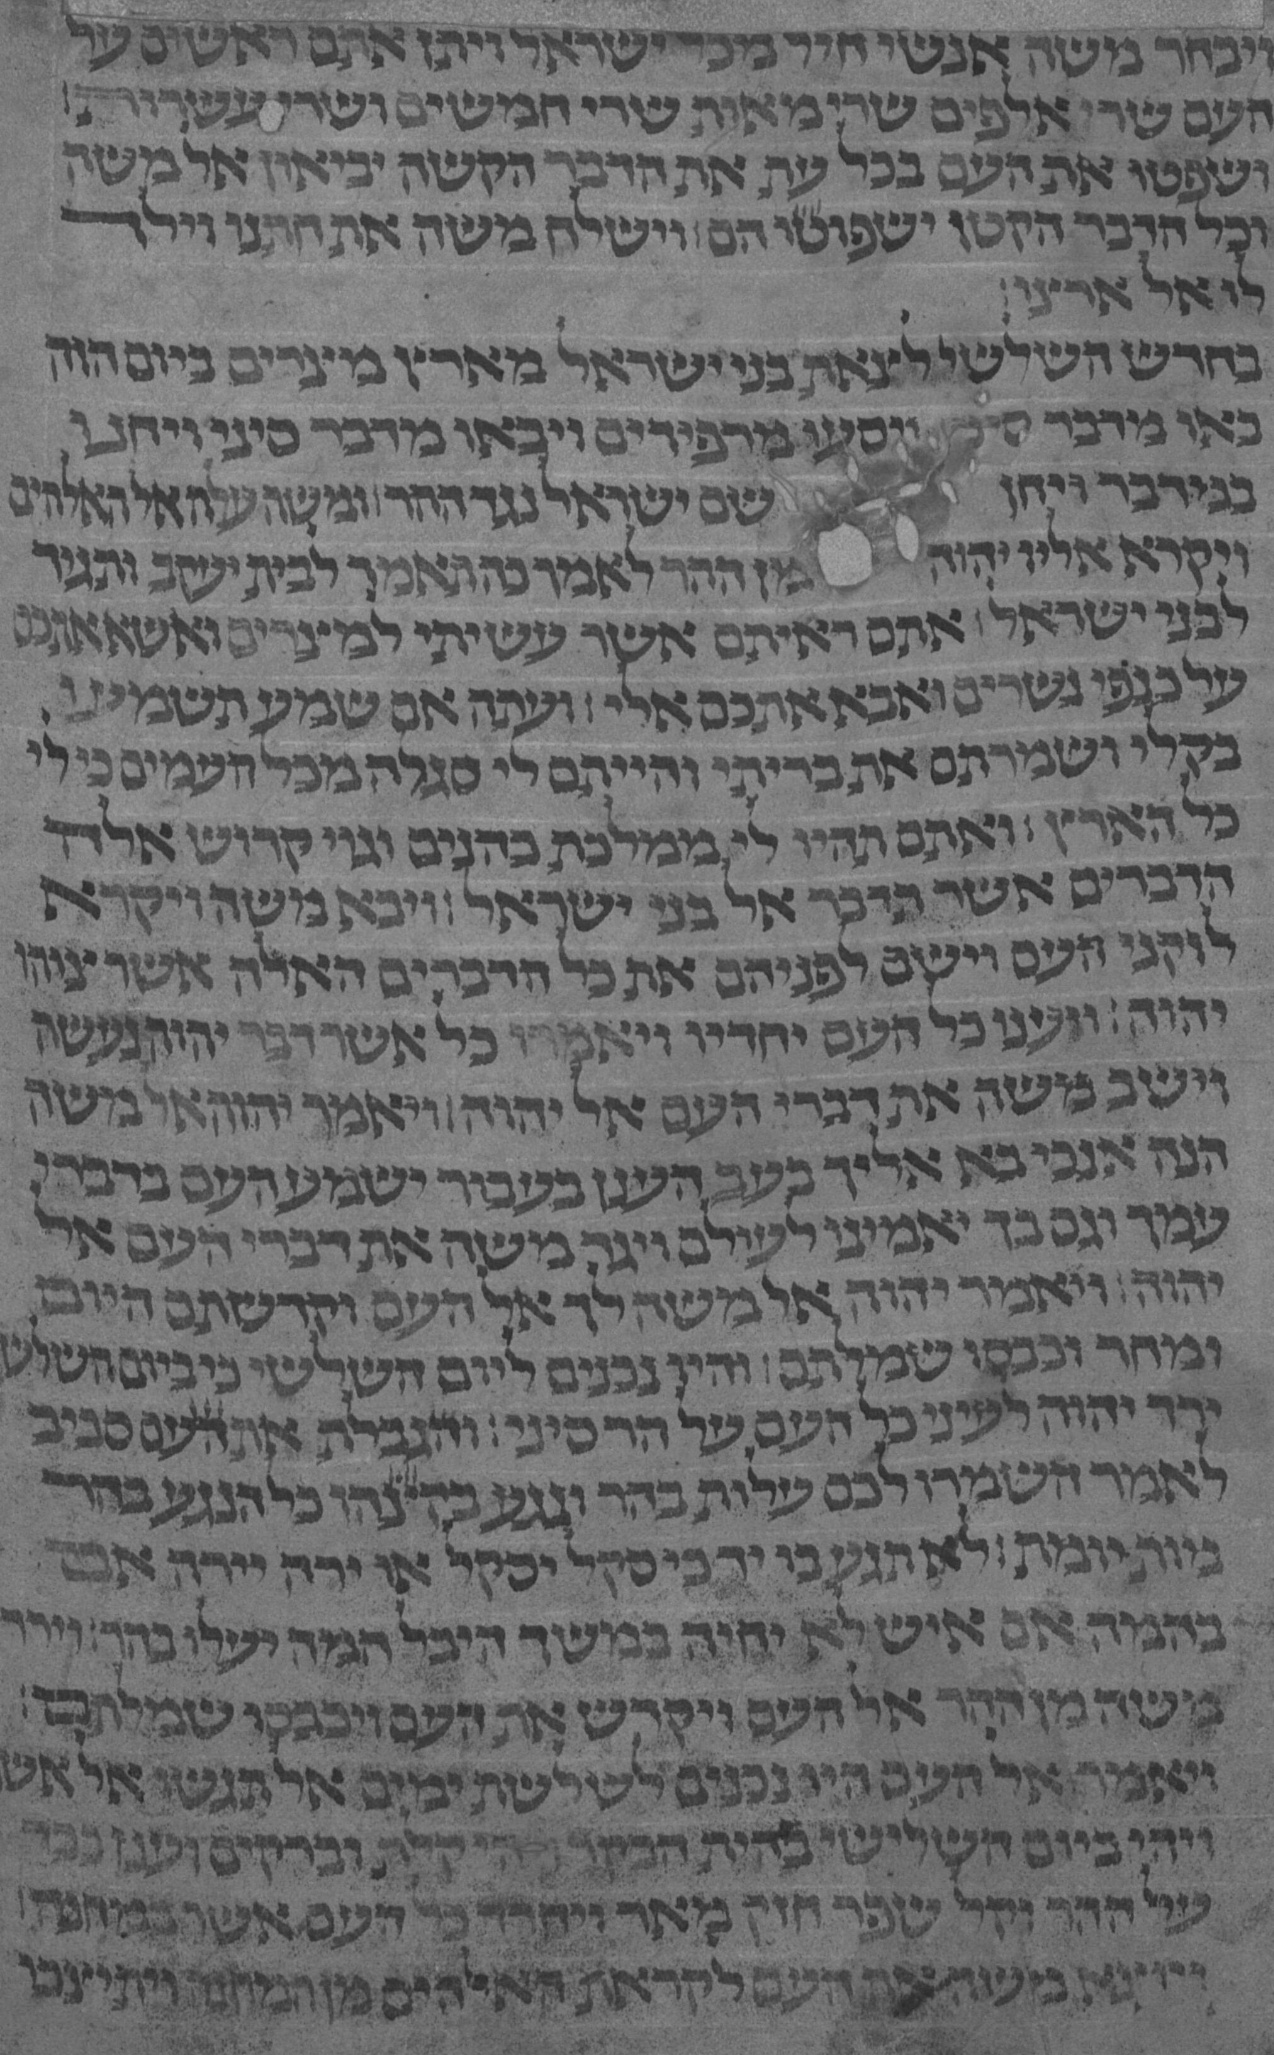 ויבחר משה אנשי חיל מכל ישראל ויתן אתם ראשים על
העם שרי אלפים שרי מאות שרי חמשים ושרי עשרות׃
ושפטו את העם בכל עת את הדבר הקשה יביאון אל משה
וכל הדבר הקטן ישפוטו הם׃ וישלח משה את חתנו וילך
לו אל ארצו׃
בחדש השלשי לצאת בני ישראל מארץ מצרים ביום הזה
באו מדבר סיני ויסעו מרפידים ויבאו מדבר סיני ויחנו
במדבר ויחן שם ישראל נגד ההר׃ ומשה עלה אל האלהים
ויקרא אליו יהוה מן ההר לאמר כה תאמר לבית יעקב ותגיד
לבני ישראל׃ אתם ראיתם אשר עשיתי למצרים ואשא אתכם
על כנפי נשרים ואבא אתכם אלי׃ ועתה אם שמע תשמעו
בקלי ושמרתם את בריתי והייתם לי סגלה מכל העמים כי לי
כל הארץ׃ ואתם תהיו לי ממלכת כהנים וגוי קדוש אלה
הדברים אשר תדבר אל בני ישראל׃ ויבא משה ויקרא
לזקני העם וישם לפניהם את כל הדברים האלה אשר צוהו
יהוה׃ ויענו כל העם יחדיו ויאמרו כל אשר דבר יהוה נעשה
וישב משה את דברי העם אל יהוה׃ ויאמר יהוה אל משה
הנה אנכי בא אליך בעב הענן בעבור ישמע העם בדברי
עמך וגם בך יאמינו לעולם ויגד משה את דברי העם אל
יהוה׃ ויאמר יהוה אל משה לך אל העם וקדשתם היום
ומחר וכבסו שמלתם׃ והיו נכנים ליום השלשי כי ביום השלשי
ירד יהוה לעיני כל העם על הר סיני׃ והגבלת את העם סביב
לאמר השמרו לכם עלות בהר ונגע בקצהו כל הנגע בהר
מות יומת׃ לא תגע בו יד כי סקל יסקל או ירה יירה אם
בהמה אם איש לא יחיה במשך היבל המה יעלו בהר׃ וירד
משה מן ההר אל העם ויקדש את העם ויכבסו שמלתם׃
ויאמר אל העם היו נכנים לשלשת ימים אל תגשו אל אשה
ויהי ביום השלישי בהית הבקר ויהי קלת וברקים וענן כבד
על ההר וקל שפר חזק מאד ויחרד כל העם אשר במחנה׃
ויוצא משה את העם לקראת האלהים מן המחנה ויתיצבו